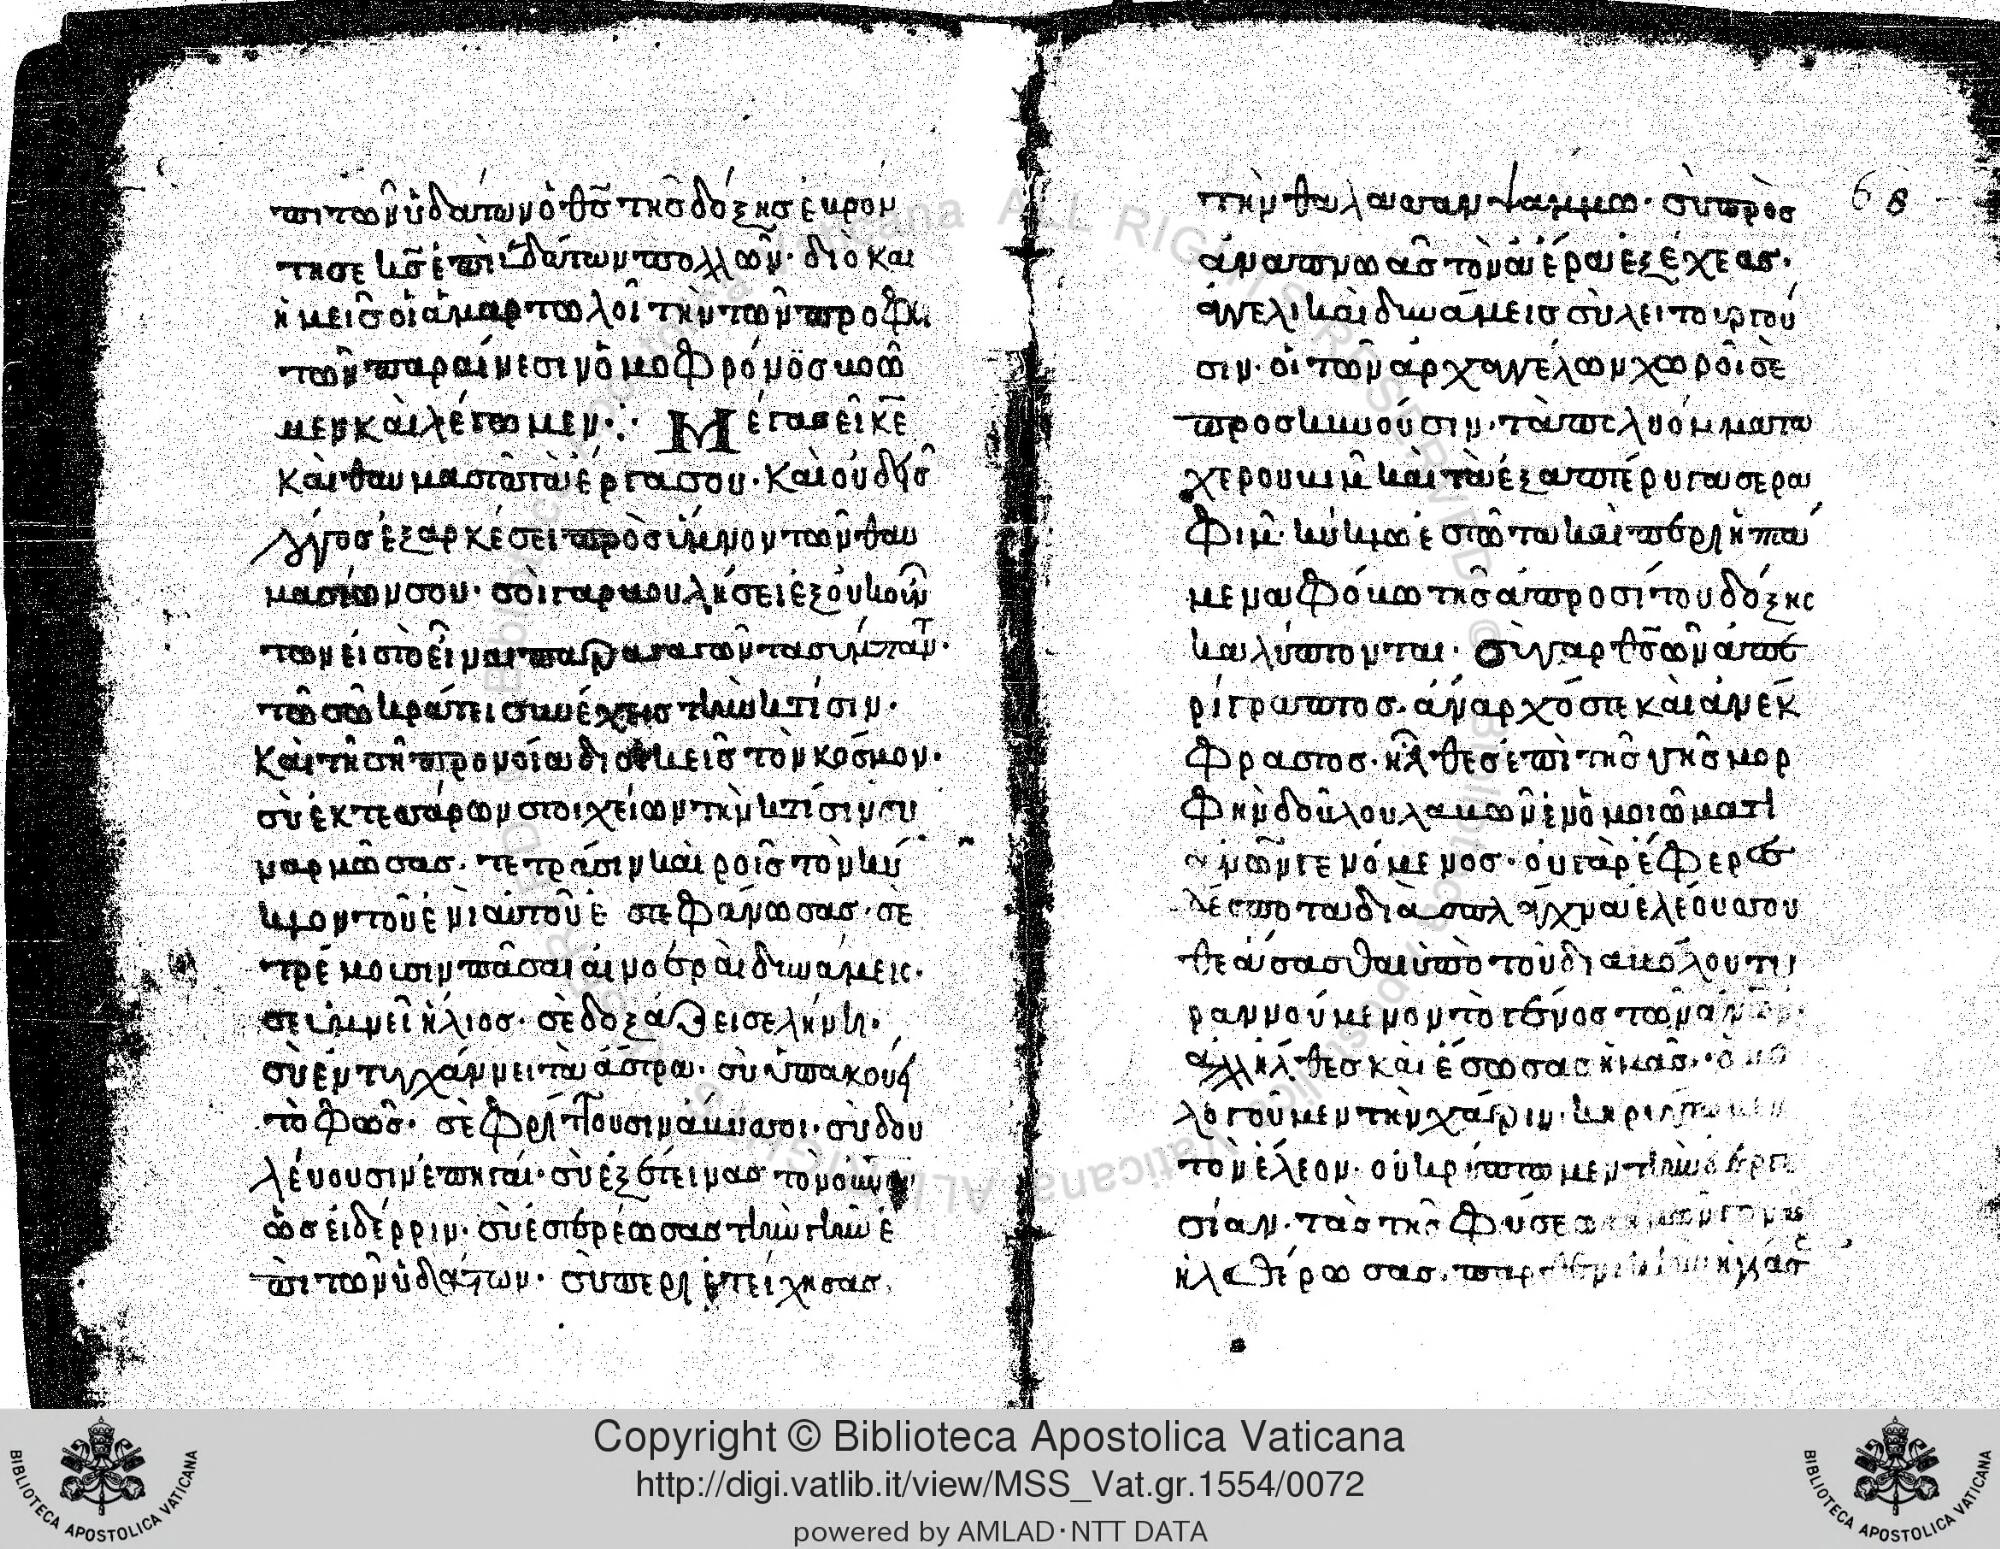 πι τῶν ὑδάτων ὁ θς τῆς δόξης ἐβρόν
τησε κς ἐπὶ ὑδάτων πολλῶν· διὸ καὶ
ἡμεῖς οἱ ἁμαρτωλοὶ τὴν τῶν προφη
τῶν παραίνεσιν ὁμοφρόνως βοῶ
μεν καὶ λέγωμεν· Μέγας εἶ κε
καὶ θαυμαστὰ τὰ ἔργα σου· καὶ οὐδεὶς
λόγος ἐξαρκέσει πρὸς ὕμνον τῶν θαυ
μασίων σου· σὺ γὰρ βουλήσει ἐξ οὐκ ὄν
των εἰς τὸ εἶναι παραγαγὼν τὰ σύμπαντ
τῶ σῶ κράτει συνέχεις τὴν κτίσιν·
καὶ τῇ σῇ προνοία διοικεῖς τὸν κόσμον·
σὺ ἐκ τεσσάρων στοιχείων τὴν κτίσιν συ
ναρμώσας· τέτρασιν καιροῖς τὸν κύ
κλον τοῦ ἐνιαυτοῦ ἐστεφάνωσας· σὲ
τρέμουσιν πᾶσαι αἱ νοεραὶ δυνάμεις·
σὲ ὑμνεῖ ἥλιος· σὲ δοξάζει σελήνη·
σὺ ἐντυγχάννει τὰ ἄστρα· σὺ ὑπακούει
τὸ φῶς· σὲ φρίττουσιν ἄβυσσοι· σὺ δου
λεύουσιν ἐπηγαί· σὺ ἐξέτεινας τὸν οὐνον
ὡσεὶ δέρριν· σὺ ἐστερέωσας τὴν γῆν ἐ
πὶ τῶν ὑδάτων· σὺ περιετείχησας
τὴν θάλασσαν ψάμμω· σὺ πρὸς
ἀναπνοὰς τὸν ἀέρα ἐξέχεας·
ἀγγελικαὶ δυνάμεις σὺ λειτουργοῦ
σιν· οἱ τῶν ἀρχαγγέλων χωροὶ σὲ
προσκυνοῦσιν· τὰ πολυόμματα
χερουβὶμ καὶ τὰ ἑξαπτέρυγα σερα
φίμ· κύκλω ἑστῶτα καὶ περιϊπτά
μενα φόβω τῆς ἀπροσίτου δόξης
καλύπτονται· σὺ γὰρ θς ὢν ἀπε
ρίγραπτος· ἄναρχός τε καὶ ἀνέκ
φραστος· ἦλθες ἐπὶ τῆς γῆς μορ
φὴν δούλου λαβὼν ἐν ὁμοιώματι
ανων γενόμενος· οὐ γὰρ ἔφερες
δέσποτα διὰ σπλάγχνα ἐλέους σου
θεάσασθαι ὑπὸ τοῦ διαβόλου τυ
ραννούμενον τὸ γένος τῶν ανων·
ἀλλ' ἦλθες καὶ ἔσωσας ἡμᾶς· ὁμο
λογοῦμεν τὴν χάριν· κηρύττωμεν
τὸν ἔλεον· οὐ κρύπτωμεν τὴν εὐεργε
σίαν· τὰς τῆς φύσεως ἡμῶν γονὰς
ἠλευθέρωσας· παρθενικὴν ἡγίασας